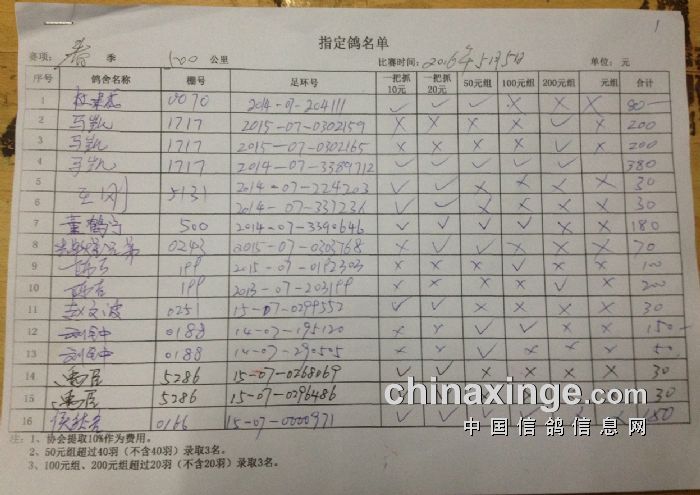 1
指定鸽名单
赛项: 春 季 500 公里 比赛时间: 2016年5月5日 单位: 元
序号 鸽舍名称 棚号 足环号 一把抓10元 一把抓20元 50元组 100元组 200元组 元组 合计
1 0070 2014-07-204111 ✓ ✓ ✓ × × × 80
2 马凯 1717 2015-07-0302159 × × × × ✓ × 200
3 马凯 1717 2015-07-0302165 × × × × ✓ × 200
4 马凯 1717 2014-07-3389712 ✓ ✓ ✓ ✓ ✓ 380
5 王刚 5131 2014-07-224203 ✓ ✓ × × × × 30
6 2014-07-337231 ✓ ✓ × × × × 30
7 董鹤宁 500 2014-07-3390646 ✓ ✓ ✓ ✓ × × 180
8 0243 2015-07-0303768 × ✓ ✓ × × × 70
9 199 2015-07-0192303 × × × ✓ × × 100
10 199 2013-07-203199 × × × × ✓ × 200
11 赵文波 0251 15-07-0299552 ✓ ✓ × × × × 30
12 0188 14-07-195120 × × ✓ ✓ × × 150
13 0188 14-07-290505 × × ✓ × × × 50
14 禹臣 5286 15-07-0268069 ✓ ✓ × × × × 30
15 禹臣 5286 15-07-0296486 ✓ ✓ 30
16 0166 15-07-0000971 × × ✓ ✓ × × 150
注: 1、协会提取10%作为费用。
2、50元组超过40羽(不含40羽)录取3名。
3、100元组、200元组超过20羽(不含20羽)录取3名。
chinaxinge.com
中国信鸽信息网